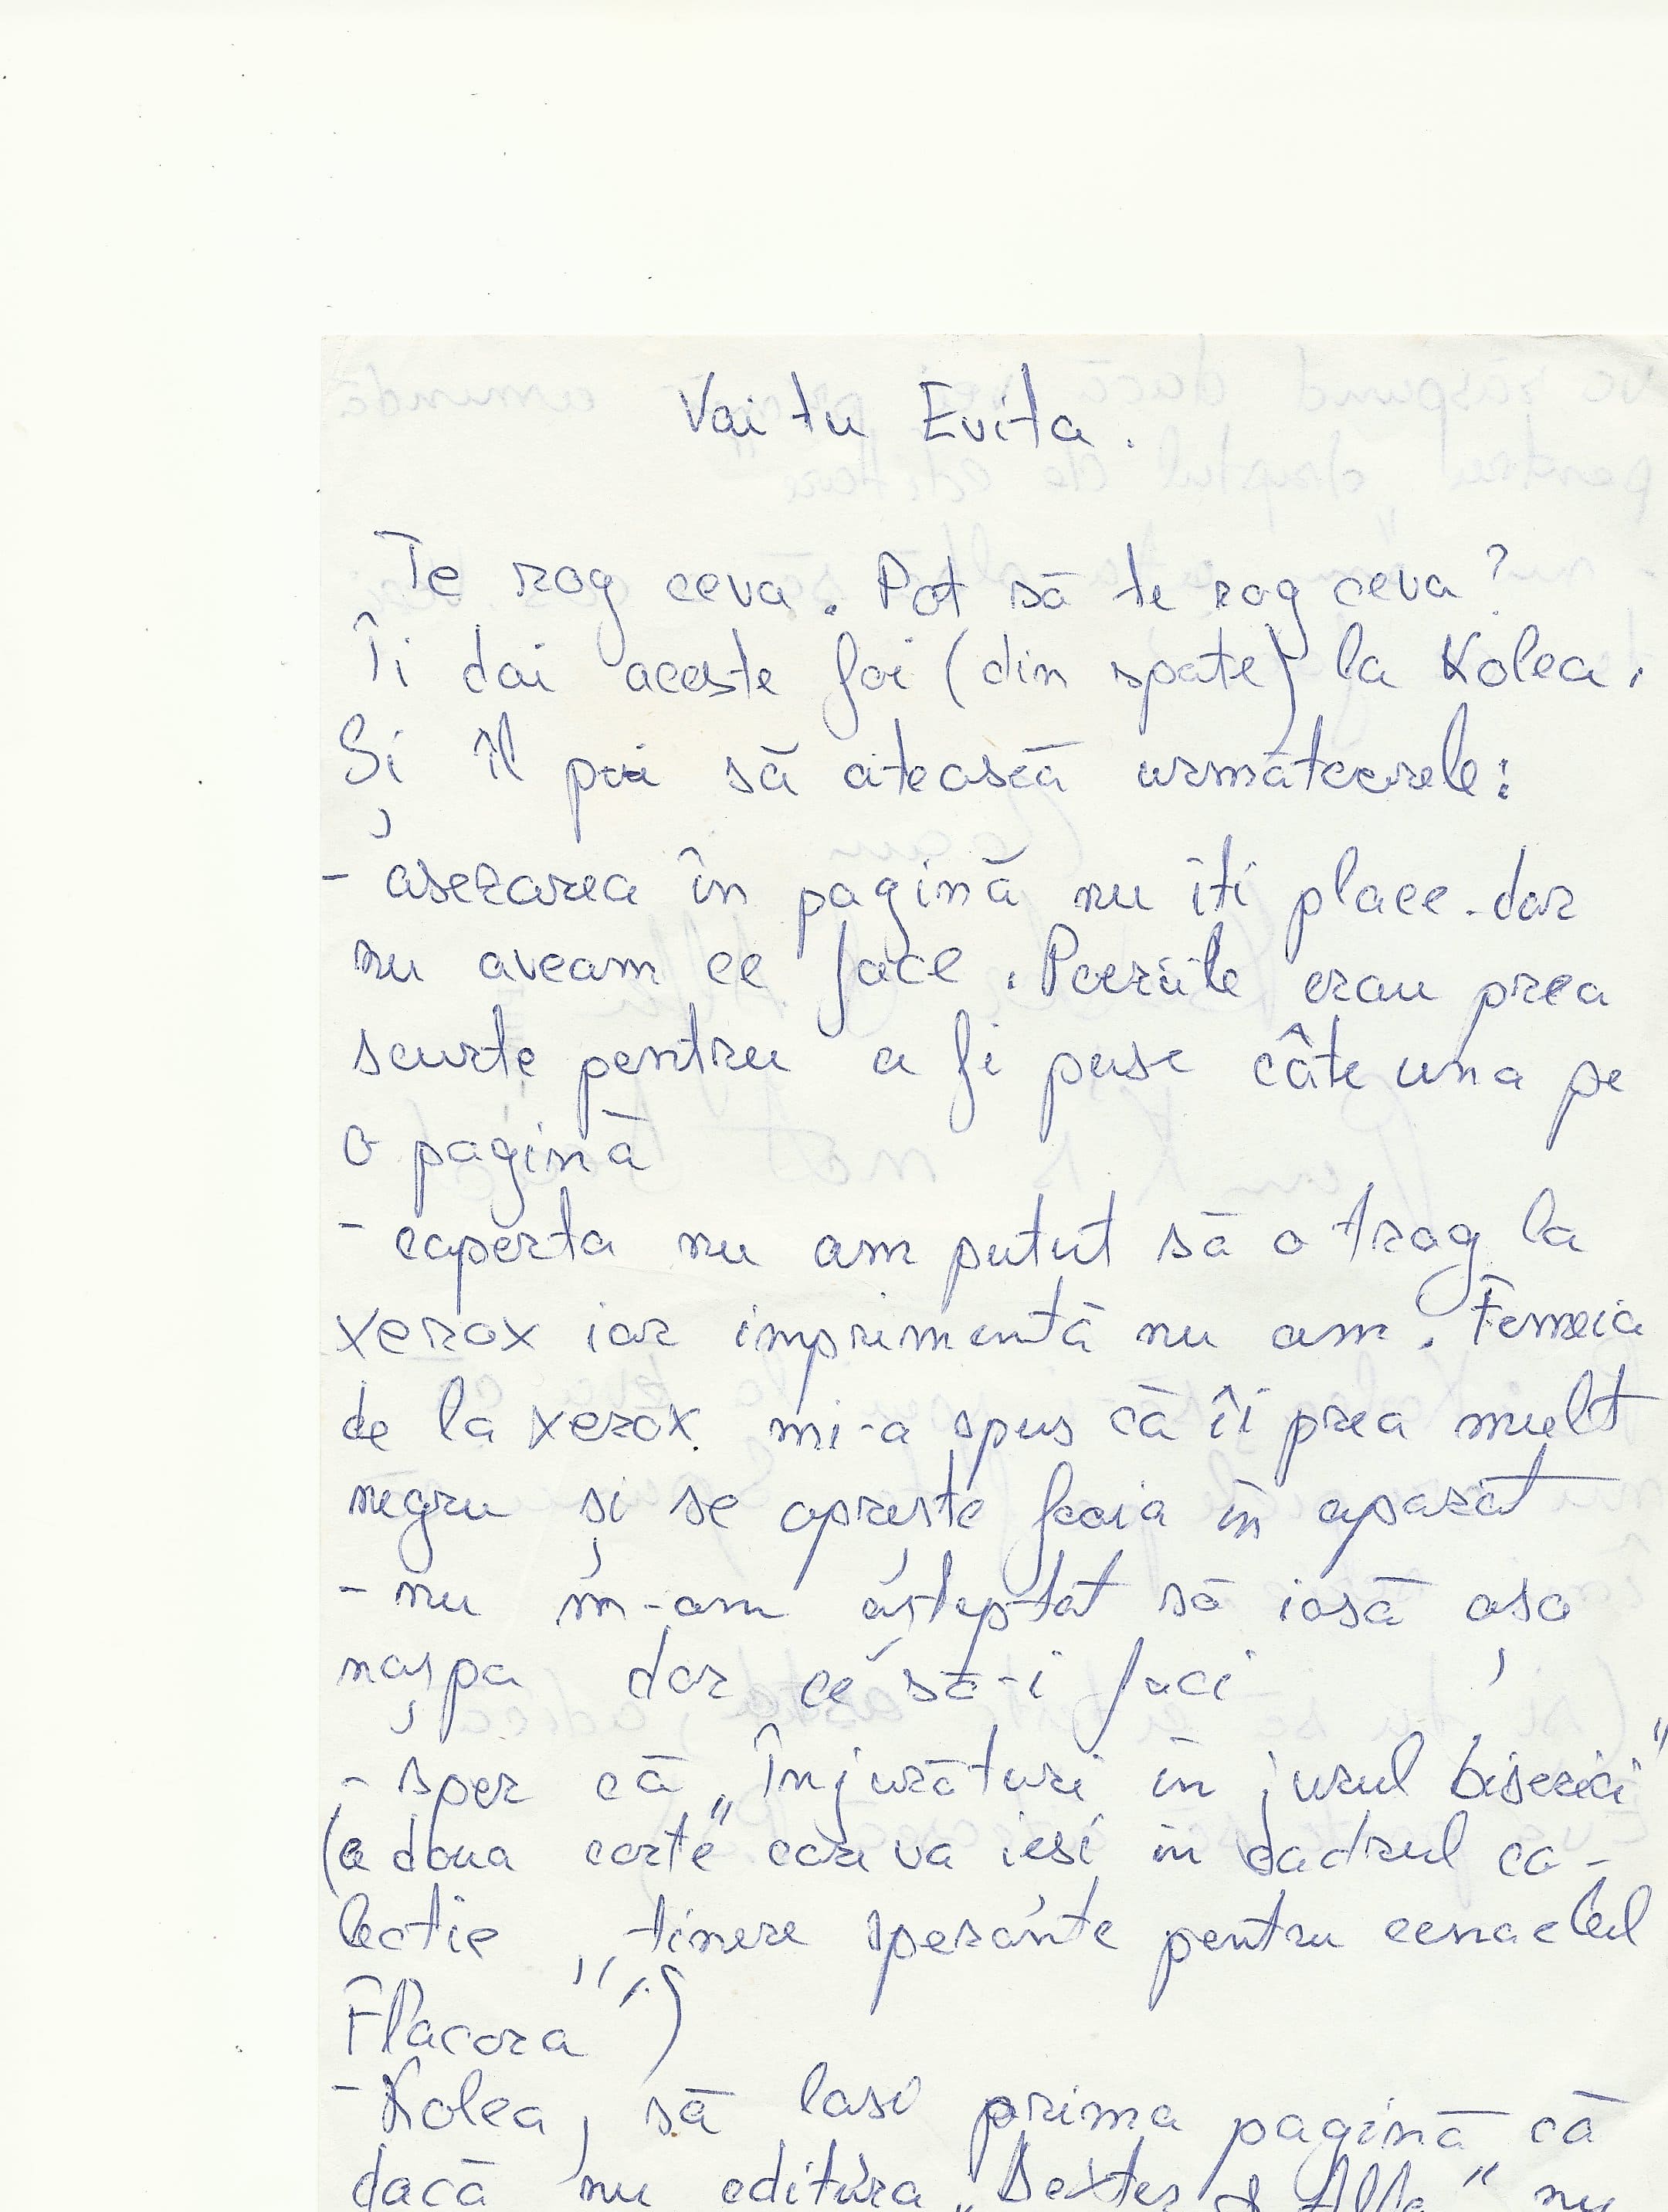 Vai tu Evita.
Te rog ceva. Pot să te rog ceva?
Îi dai aceste foi (din spate) la Kolea.
Și îl pui să citească următoarele:
- asezarea în pagină nu îti place. dar
nu aveam ce face. Poeziile erau prea
scurte pentru a fi puse câte una pe
o pagină
- coperta nu am putut să o trag la
xerox iar imprimantă nu am. Femeia
de la xerox mi-a spus că îi prea mult
negru și se oprește foaia în aparat
- nu m-am așteptat să iasă așa
nașpa dar ce să-i faci
- sper că „Înjurături în jurul bisericii"
(a doua carte care va iesi în cadrul co-
lectie „tinere speranțe pentru cenaclul
Flacăra")
- Kolea, să lasi prima pagină că
dacă nu editura „Dexter & Alfa" nu